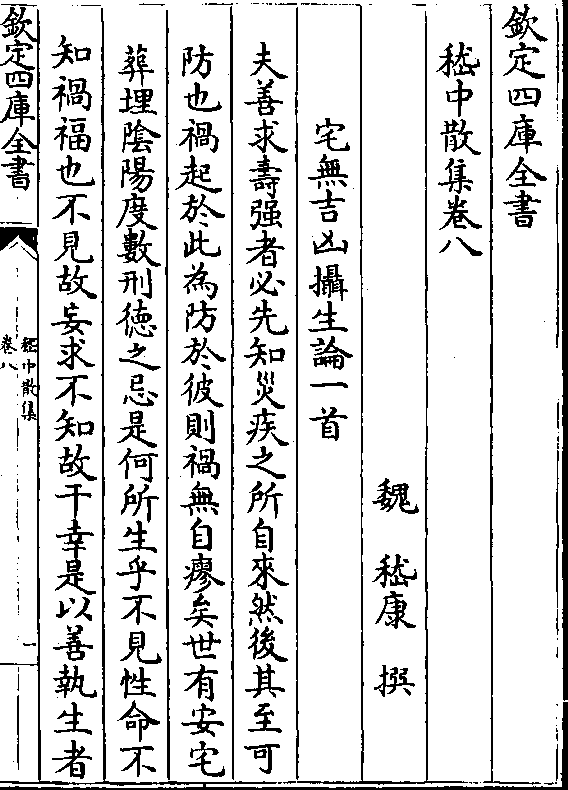 欽定四庫全書
嵇中散集卷八
魏 嵇康 撰
宅無吉凶攝生論一首
夫善求壽强者必先知災疾之所自來然後其至可
防也禍起於此為防於彼則禍無自瘳矣世有安宅
葬埋陰陽度數刑德之忌是何所生乎不見性命不
知禍福也不見故妄求不知故干幸是以善執生者
欽定四庫全書
嵇中散集
卷八
一